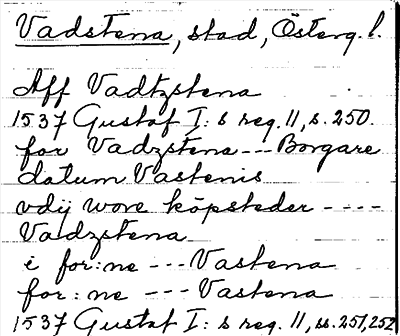 Vadstena, stad, Österg. l.
Aff Vadtzstena
1537 Gustaf I:s reg. 11, s. 250.
for Vadzstena --- Borgare
datum Vastenis
vdij wore köpsteder ----
Vadzstena
i for:ne --- Vastena
for:ne --- Vastena
1537 Gustaf I:s reg. 11, ss. 251, 252